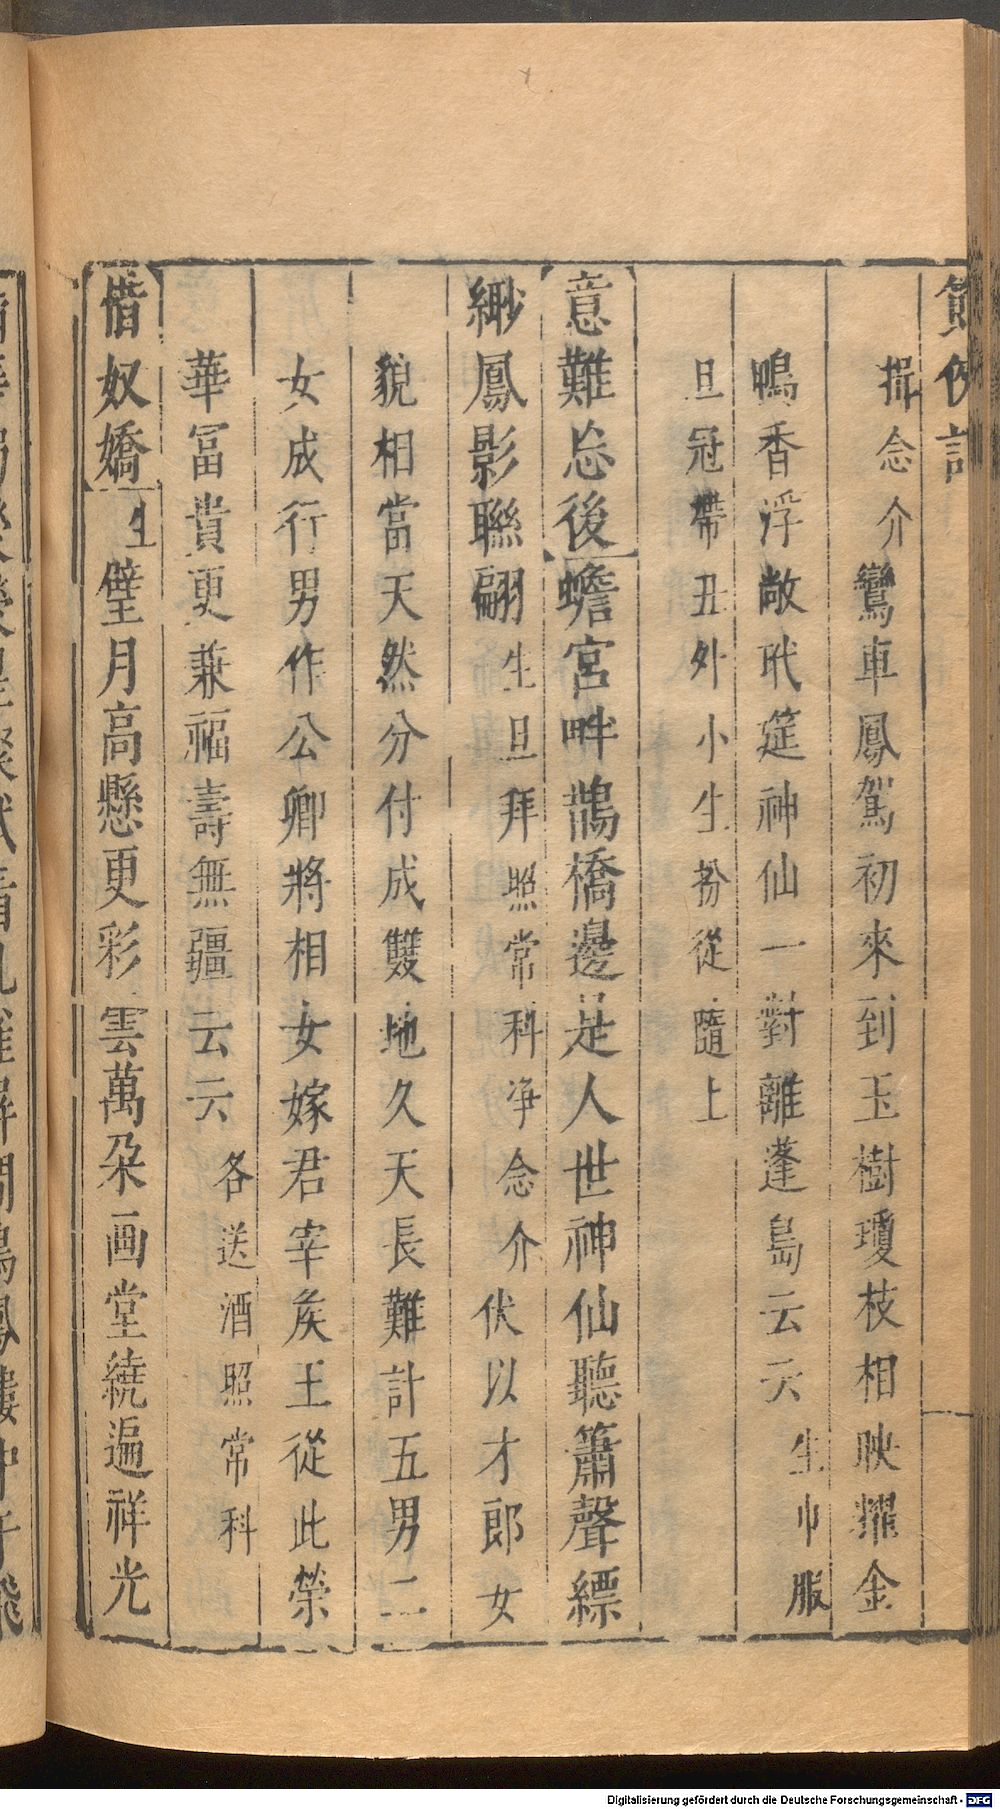 揖念介鸞車鳳駕初來到玉樹瓊枝相映耀金
鴨香浮敞玳筵神仙一對離蓬島云云生巾服
旦冠帶丑外小生扮從隨上
意難忘後蟾宮畔鵲橋邊是人世神仙聽簫聲縹
緲鳳影聯翩生旦拜照常科净念介伏以才郎女
貌相當天然分付成雙地久天長難計五男二
女成行男作公卿將相女嫁君宰矦王從此榮
華冨貴更兼福壽無疆云云各送酒照常科
惜奴嬌生璧月高懸更彩雲萬朵画堂繞遍祥光
Digitalisierung gefördert durch die Deutsche Forschungsgemeinschaft - DFG